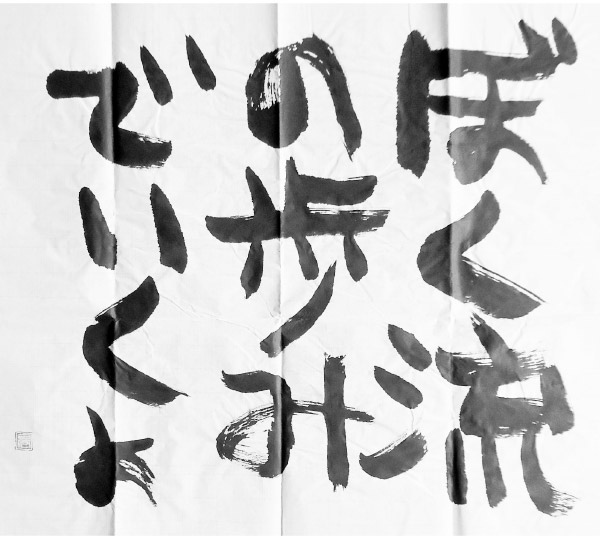 ぼく流
の歩み
でいくよ